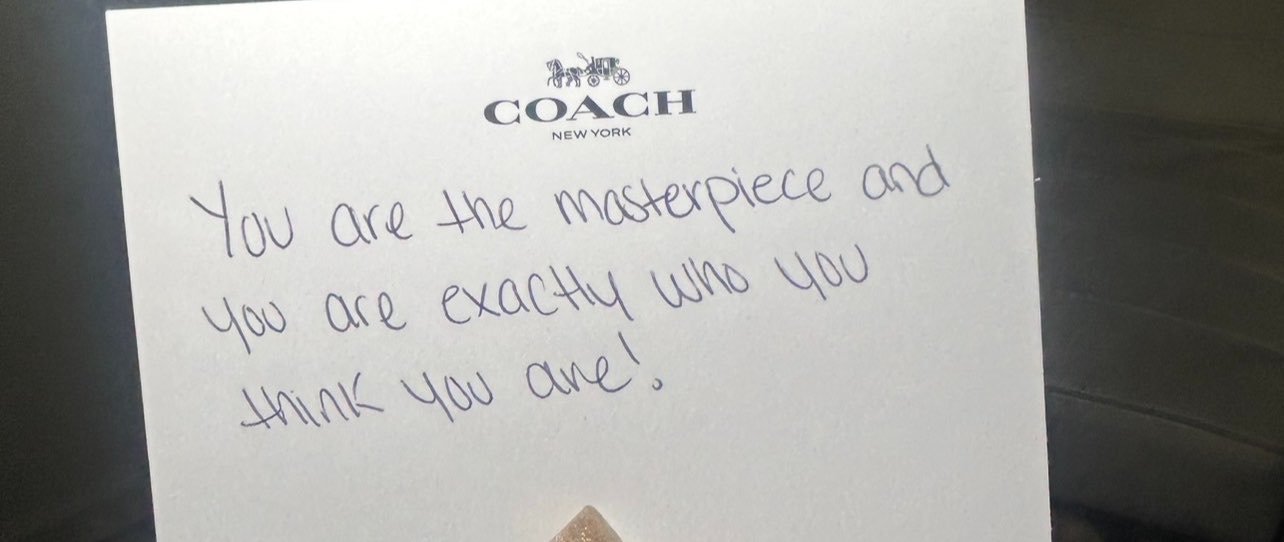 COACH
NEW YORK
You are the masterpiece and
you are exactly who you
think you are!